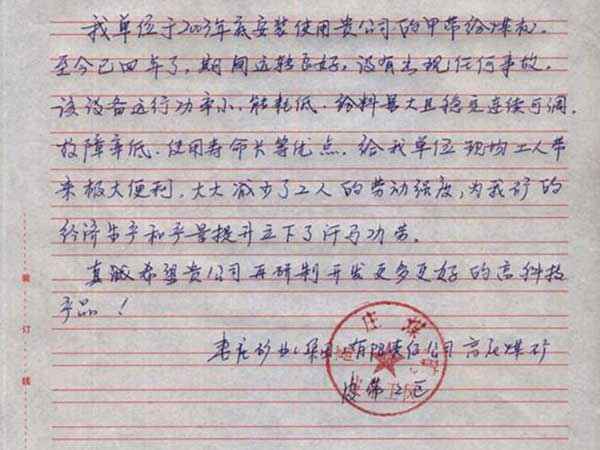 我单位于2003年底安装使用贵公司的甲带给煤机.
至今已四年了，期间运转良好，没有出现任何事故，
该设备运行功率小、能耗低、给料量大且稳定连续可调.
故障率低、使用寿命长等优点，给我单位现场工人带
来极大便利，大大减少了工人的劳动强度，为我矿的
经济生产和产量提升立下了汗马功劳。
真诚希望贵公司再研制开发更多更好的高科技
产品！
枣庄矿业(集团)有限责任公司高庄煤矿
皮带工区
庄煤
装
订
线